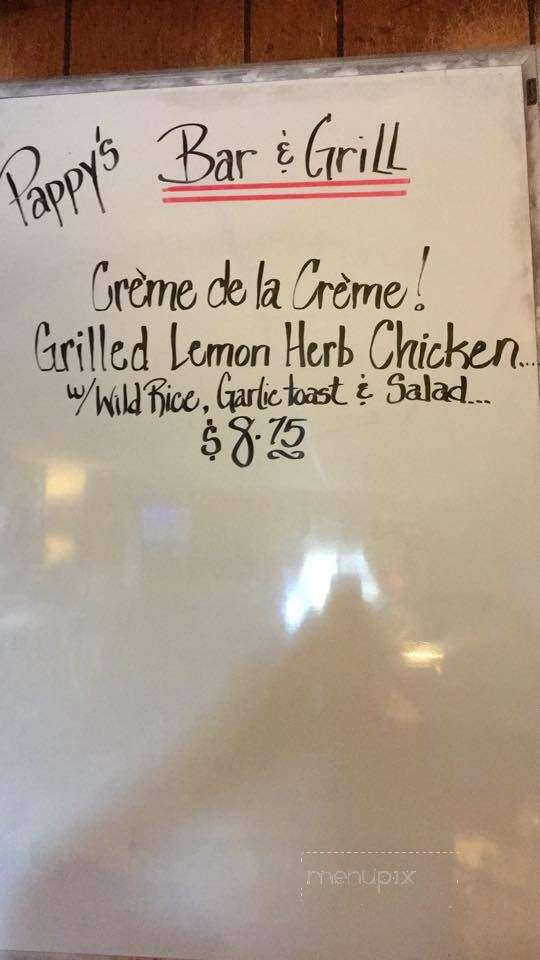 Pappy's Bar & Grill
Crème de la Crème!
Grilled Lemon Herb Chicken...
w/ Wild Rice, Garlic toast & Salad...
$8.75
menupix